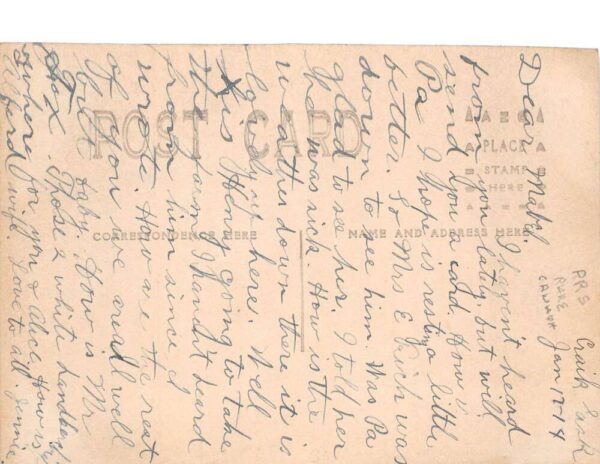 POST CARD
PLACE
STAMP
HERE
CORRESPONDENCE HERE
NAME AND ADDRESS HERE
RARE
CANADA
Craik Sask
Jan 17-14
Dear Mabel.
I haven't heard
from you lately but will
send you a card. How is
Pa I hope is resting a little
better. So Mrs E was
down to see him. Was Pa
glad to see her. I told her
he was sick. How is the
weather down there it is
here. Well
is Henry going to take
the farm I hand't heard
from him since I
wrote How are the rest
of you we are all well
but baby. How is Mr
Fox. Those 2 white
where for you & Alice How is
wife. Love to all. Jennie